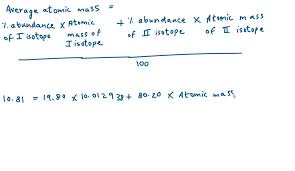 Average atomic mass =
% abundance × Atomic + % abundance × Atomic mass
of I isotope mass of of II isotope of II isotope
I isotope
100
10.81 = 19.80 × 10.012938 + 80.20 × Atomic mass